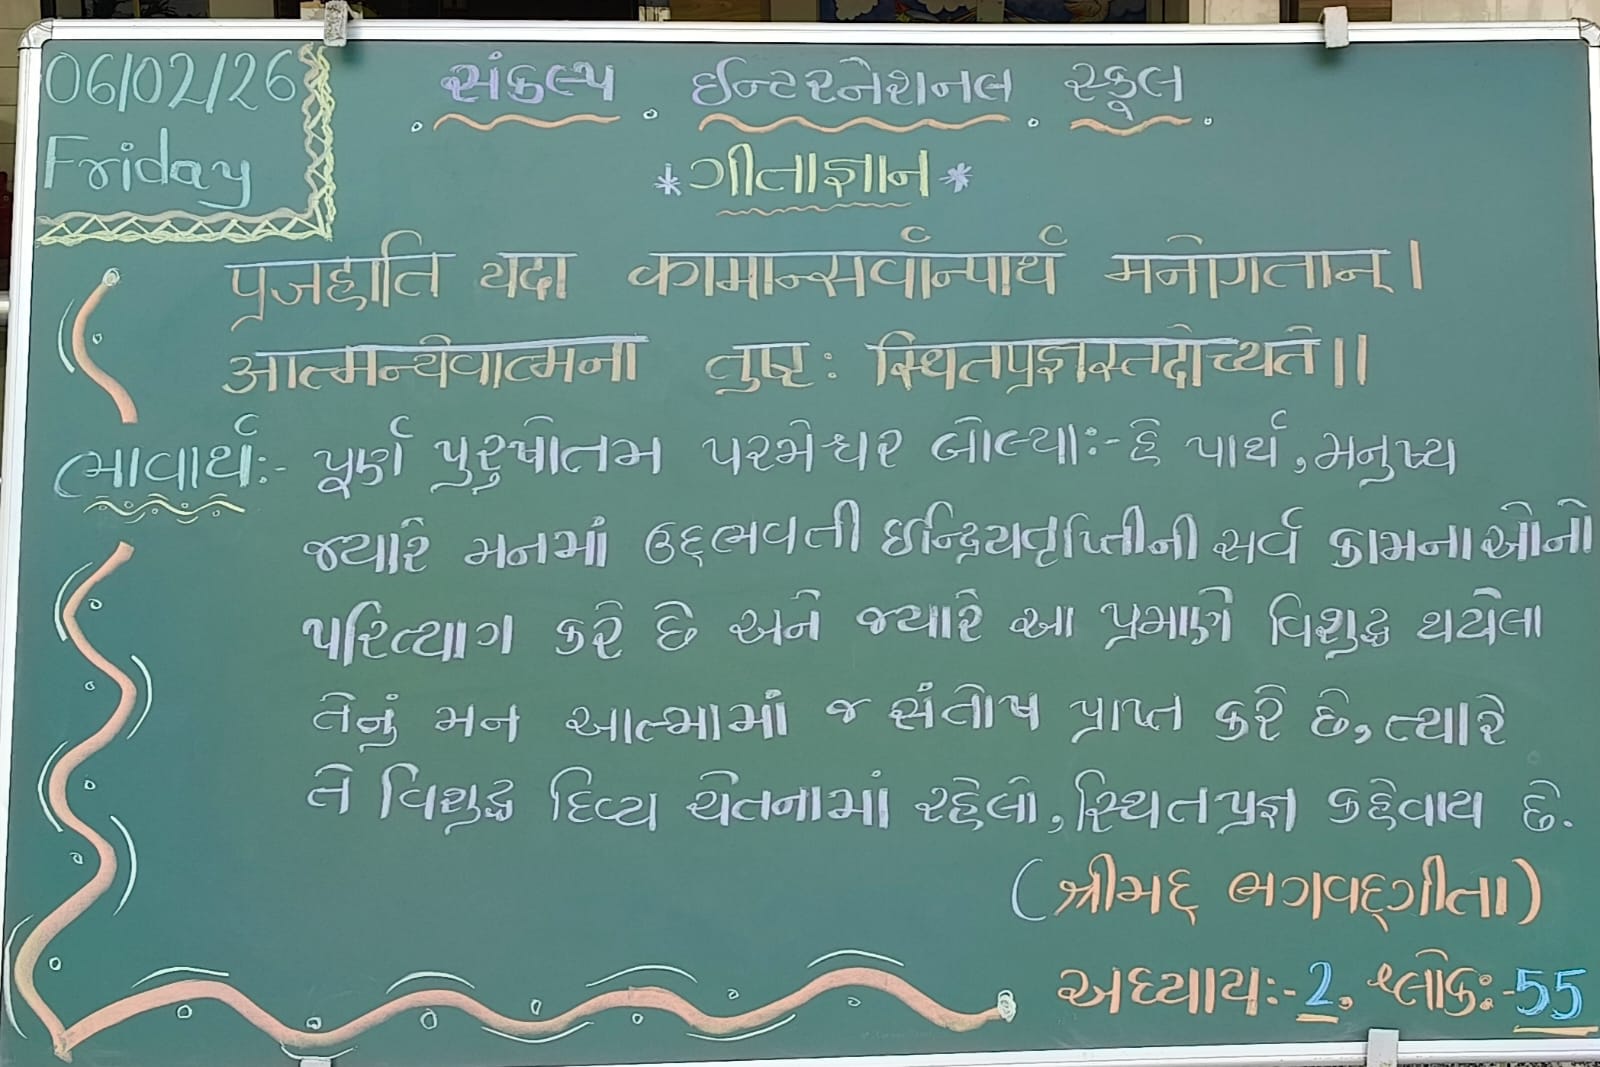 06/02/26
Friday
સંકલ્પ ઈન્ટરનેશનલ સ્કૂલ
*ગીતાજ્ઞાન*
प्रजहाति यदा कामान्सर्वान्पार्थ मनोगतान्।
आत्मन्येवात्मना तुष्टः स्थितप्रज्ञस्तदोच्यते॥
ભાવાર્થઃ- પૂર્ણ પુરુષોતમ પરમેશ્વર બોલ્યાઃ- હે પાર્થ, મનુષ્ય
જ્યારે મનમાં ઉદ્દભવતી ઇન્દ્રિયતૃપ્તિની સર્વ કામનાઓનો
પરિત્યાગ કરે છે અને જ્યારે આ પ્રમાણે વિશુદ્ધ થયેલા
તેનું મન આત્મામાં જ સંતોષ પ્રાપ્ત કરે છે, ત્યારે
તે વિશુદ્ધ દિવ્ય ચેતનામાં રહેલો, સ્થિતપ્રજ્ઞ કહેવાય છે.
(શ્રીમદ્ ભગવદ્ગીતા)
અધ્યાયઃ-2, શ્લોકઃ-55